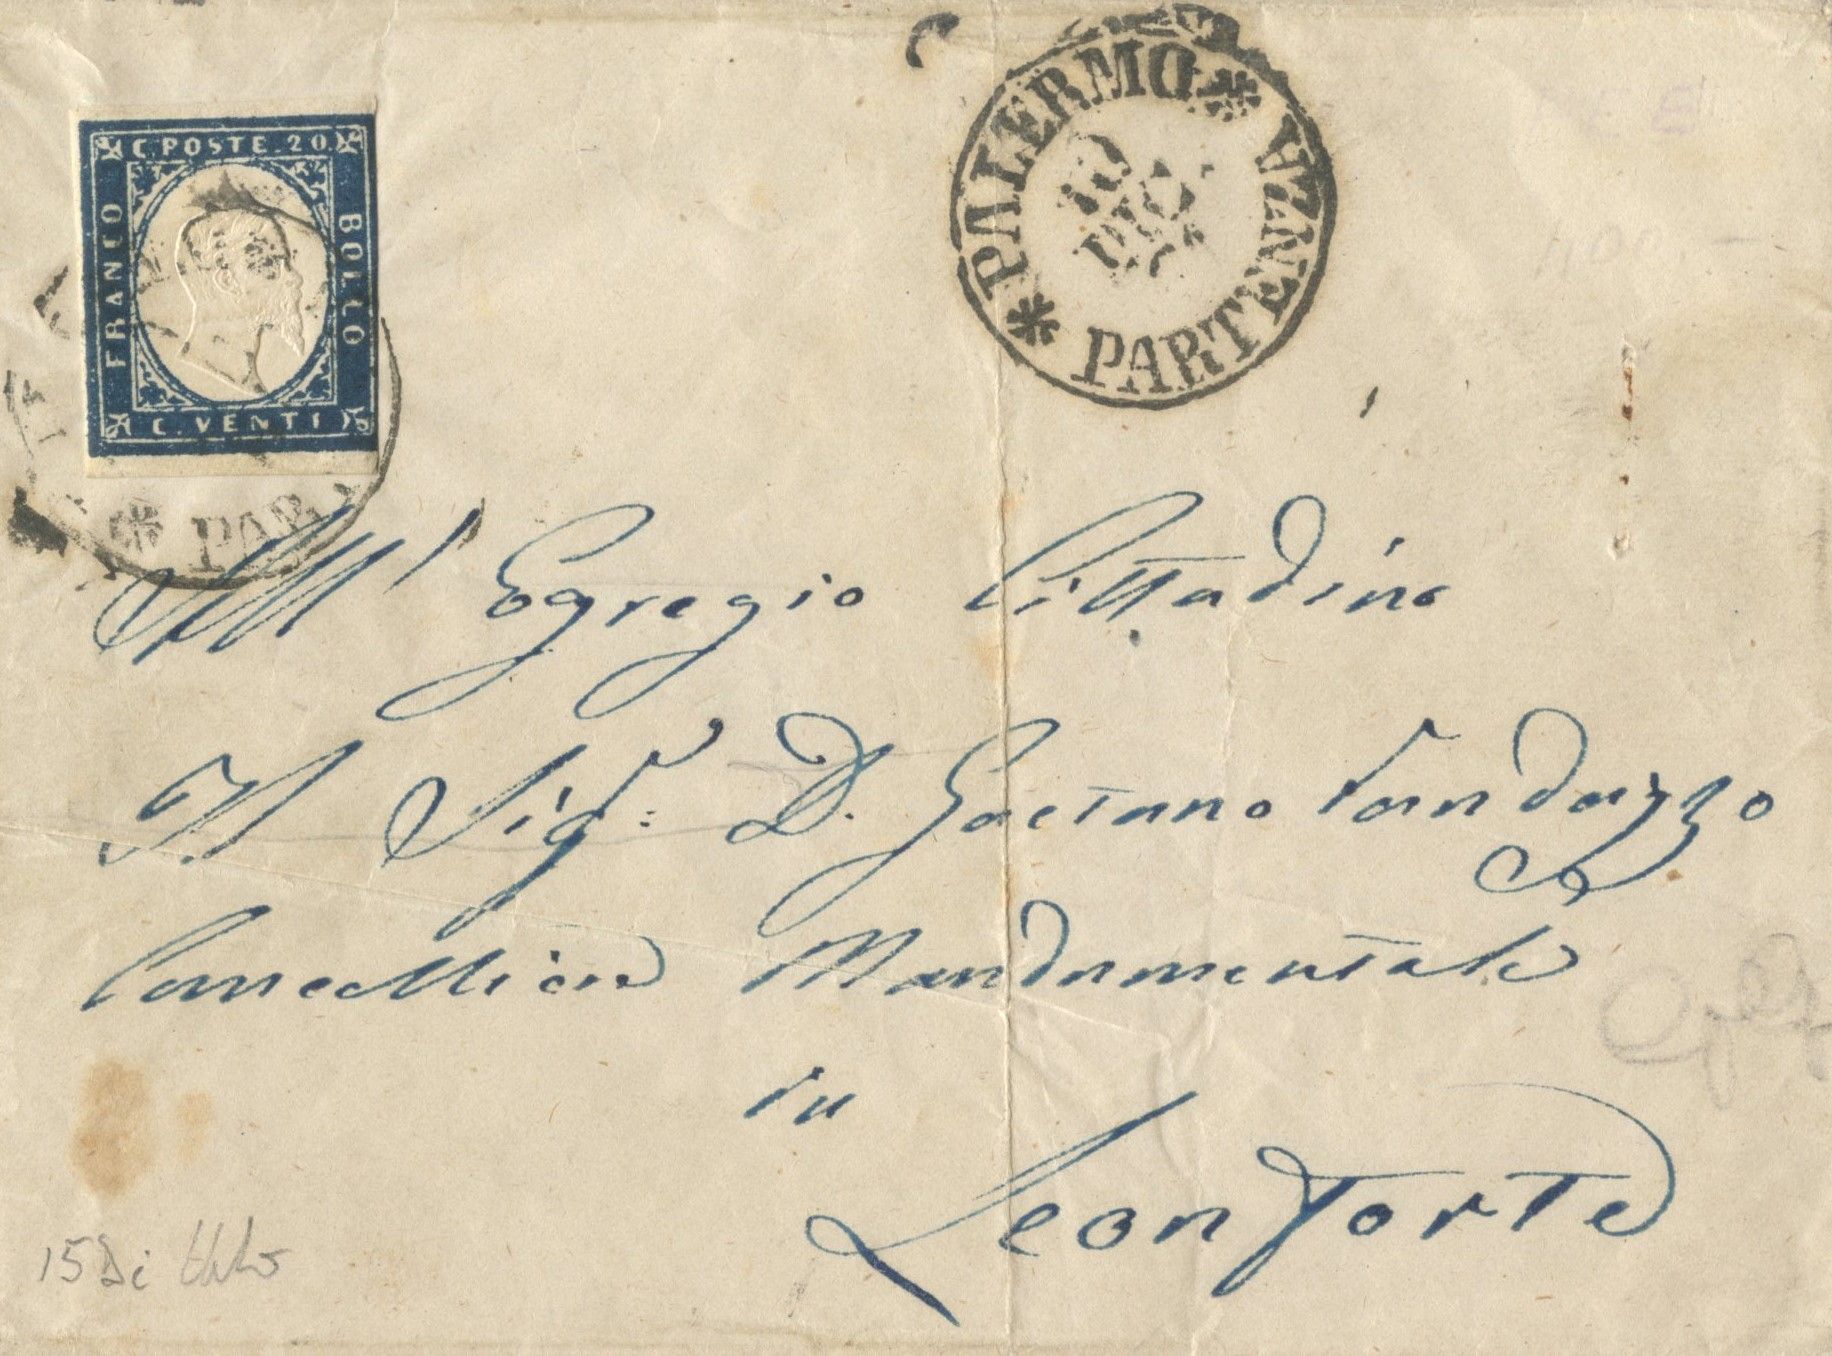 C. POSTE. 20.
FRANCO
BOLLO
C. VENTI
PAR
* PALERMO *
PARTENZA
10
DIC
All' Egregio Cittadino
Il Sigr: D. Gaetano Randazzo
Cancelliere Mandamentale
in
Leonforte
15 Di